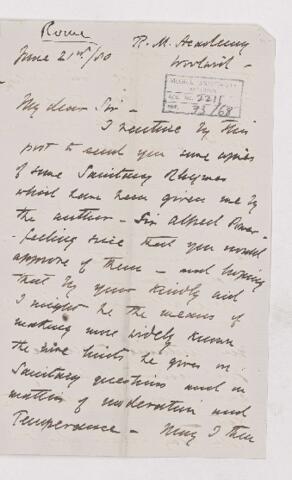 Rowe
June 21st/80
R. M. Academy
Woolwich -
My dear Sir -
I venture by this
post to send you some copies
of some Sanitary Rhymes
which have been given me by
the author - Sir Alfred Power
- feeling sure that you would
approve of them - and hoping
that by your kindly aid
I might be the means of
making more widely known
the wise hints he gives on
Sanitary questions and on
matters of moderation and
Temperance - May I then